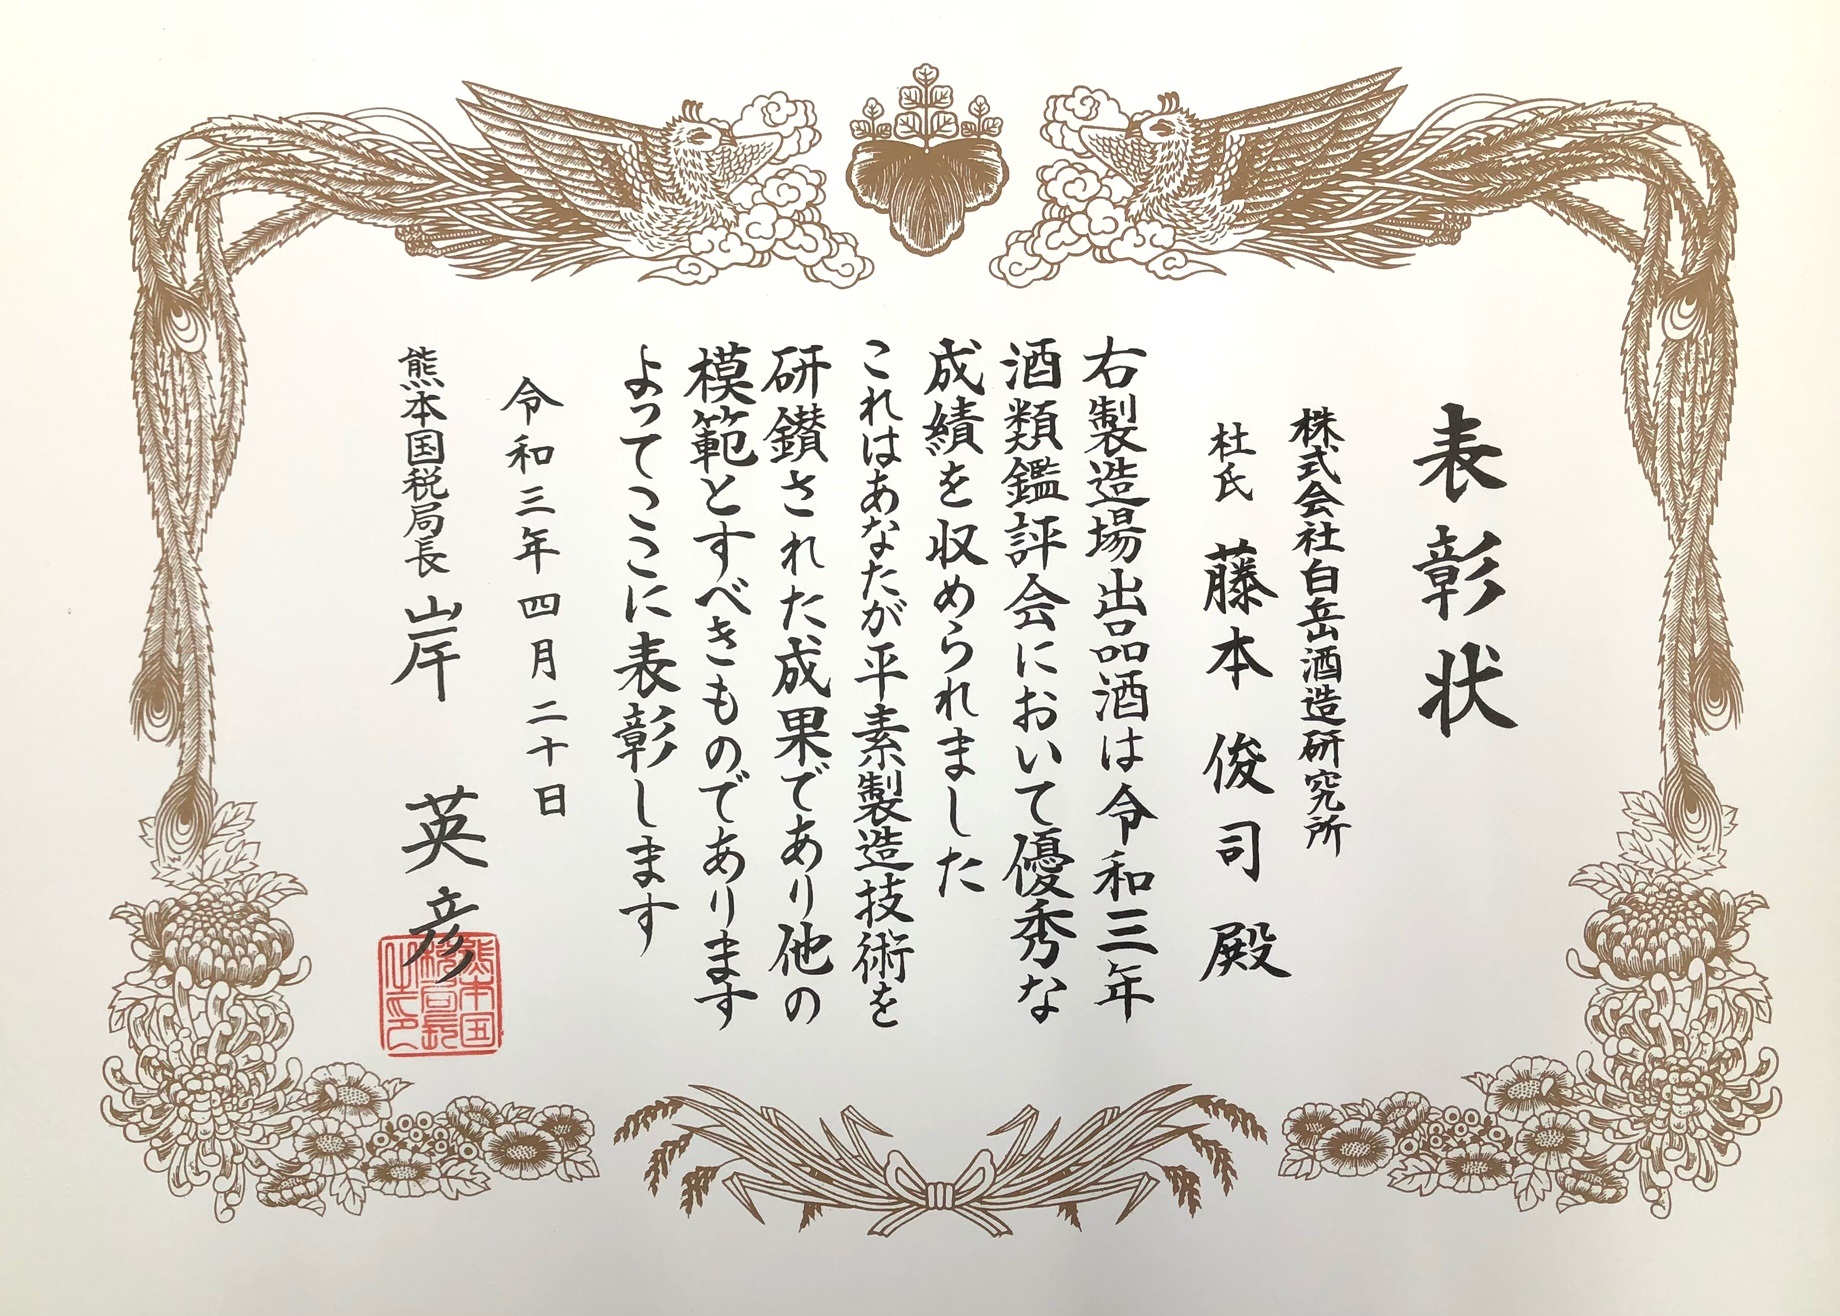 表彰状
株式会社白岳酒造研究所
杜氏 藤本俊司殿
右製造場出品酒は令和三年
酒類鑑評会において優秀な
成績を収められました
これはあなたが平素製造技術を
研鑚された成果であり他の
模範とすべきものであります
よってここに表彰します
令和三年四月二十日
熊本国税局長 山岸英彦
熊本国税局長之印